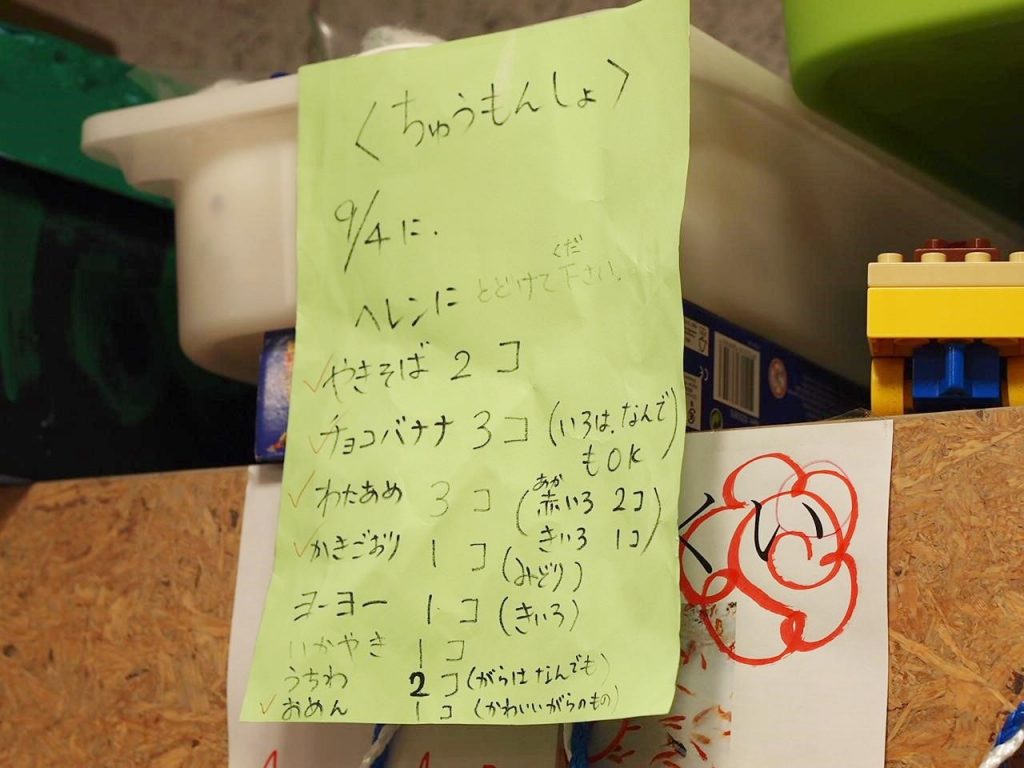 〈ちゅうもんしょ〉
9/4に.
くだ
ヘレンにとどけて下さい。
✓やきそば 2 コ
✓チョコバナナ 3コ (いろは、なんで
もOK)
あか
✓わたあめ 3 コ (赤いろ 2コ
きいろ 1コ)
✓かきごおり 1 コ (みどり)
ヨーヨー 1 コ (きいろ)
いかやき 1 コ
うちわ 2 コ (がらはなんでも)
✓おめん 1 コ (かわいいがらのもの)
くい